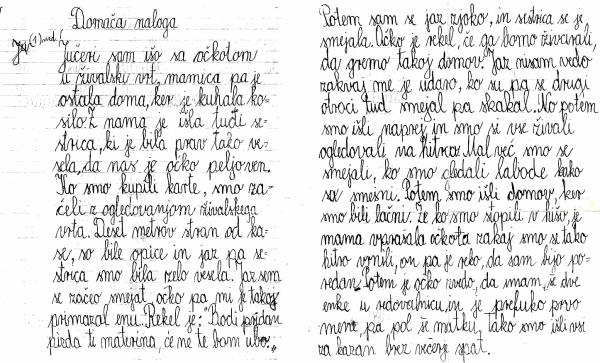 Domača naloga
Jučer sam išo sa očkotom
u živalski vrt, mamica pa je
ostala doma, ker je kuhala ko-
silo. Z nama je išla tudi se-
strica, ki je bila prav tako ve-
sela, da nas je očko peljo ven.
Ko smo kupili karte, smo za-
čeli z ogledovanjom živalskega
vrta. Deset metrov stran od ka-
se, so bile opice in jaz pa se-
strica smo bila zelo vesela. Jaz sem
se začeo smejat, očko pa mi je takoj
primazal enu. Rekel je: "Bodi pridan
pizda ti materina, če ne te bom ubo."
Potem sam se jaz zjoko, in sestrica se je
smejala. Očko je rekel, če ga bomo živcirali,
da gremo takoj domov. Jaz nisam vedo
zakvaj me je udaro, ko su pa se drugi
otroci tud smejal pa skakal. No potem
smo išli naprej in smo si vse živali
ogledovali na hitro. Mal več smo se
smejali, ko smo gledali labode kako
so smešni. Potem smo išli domov, ker
smo bile lačni. Že ko smo stopili v hišo, je
mama vprašala očkota zakaj smo se tako
hitro vrnili, on pa je reko, da sam bijo po-
redan. Potem je očko zvedo, da imam, se dve
enke u redovalnicu, in je prefuko prvo
mene, pa pol še matku, tako smo išli vsi
za kazan brez večerje spat.